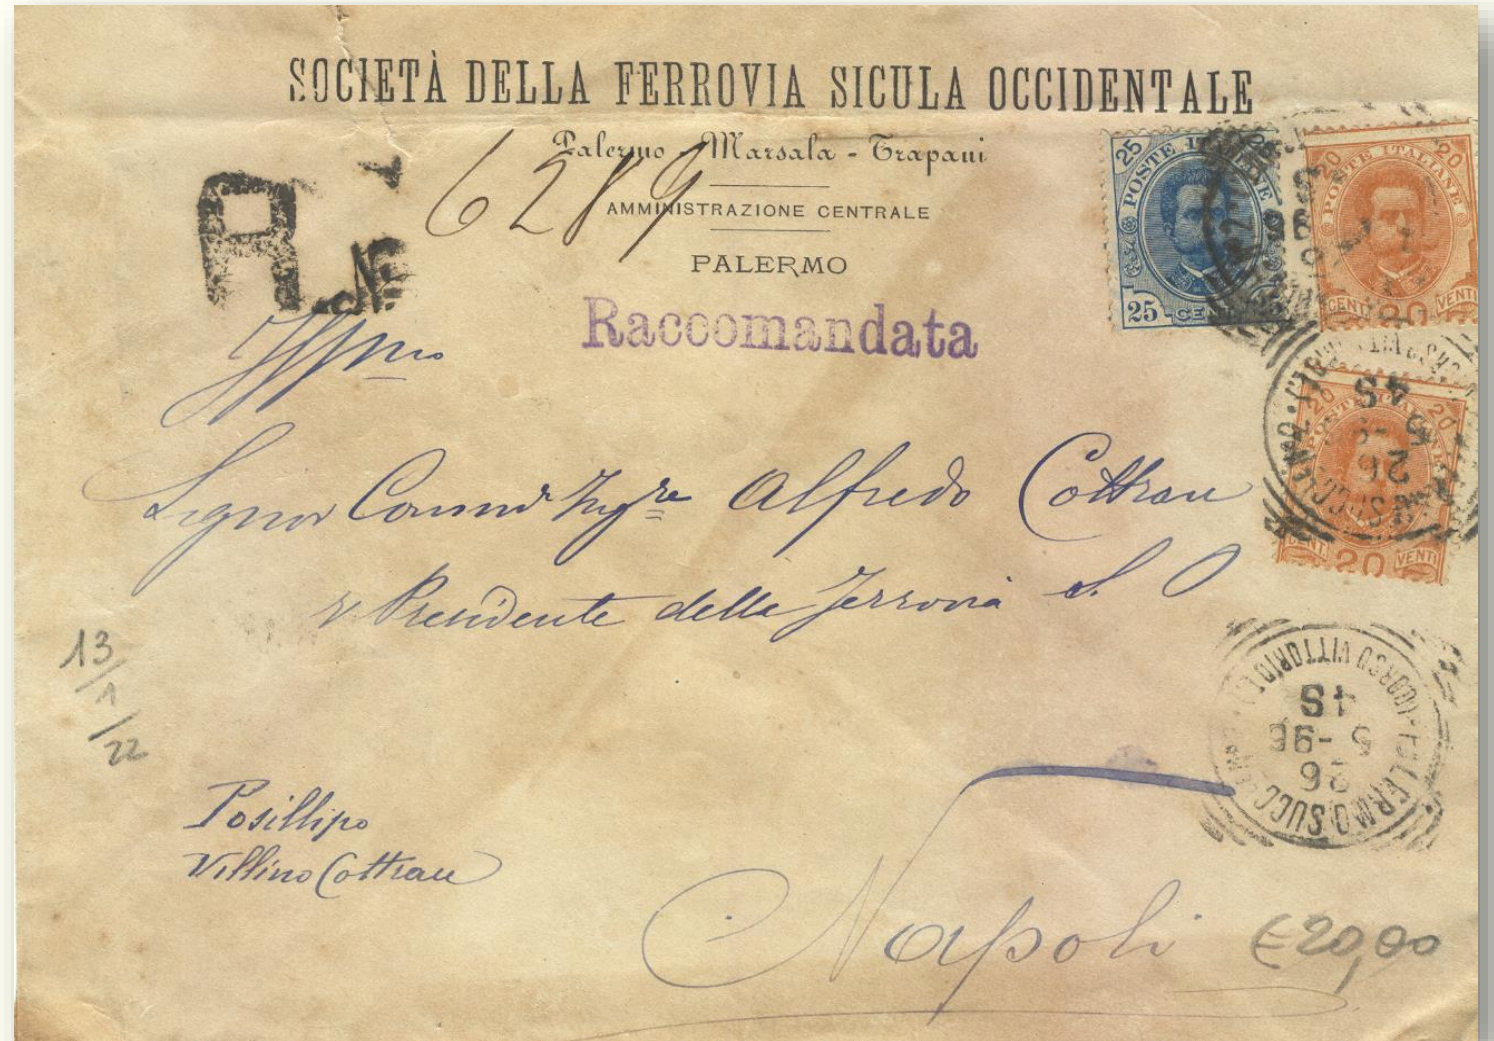 SOCIETÀ DELLA FERROVIA SICULA OCCIDENTALE
Palermo - Marsala - Trapani
6289
AMMINISTRAZIONE CENTRALE
PALERMO
R
Raccomandata
25
POSTE ITALIANE
25 CENT
20 20
POSTE ITALIANE
CENT. 20 VENTI
20 20
POSTE ITALIANE
CENT. 20 VENTI
Signor Comm Ingre Alfredo Cottrau
Presidente della Ferrovia S. O
13/1/22
PALERMO SUCC (CORSO VITTORIO E
4S
5 - 96
26
Posillipo
Villino Cottrau
Napoli
€20,00